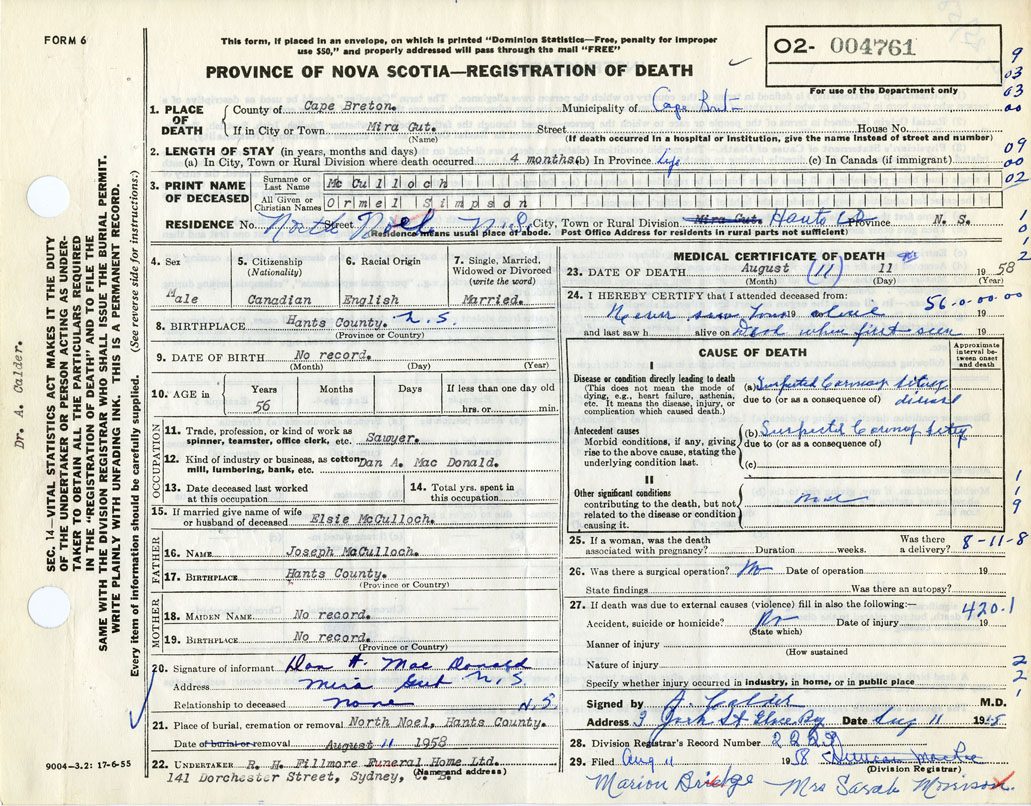 FORM 6
This form, if placed in an envelope, on which is printed "Dominion Statistics—Free, penalty for improper
use $50," and properly addressed will pass through the mail "FREE"
O2- 004761
For use of the Department only
PROVINCE OF NOVA SCOTIA—REGISTRATION OF DEATH
9
03
03
00
09
00
02
1
0
1
2
1. PLACE OF DEATH
County of Cape Breton. Municipality of Cape
If in City or Town Mira Gut. Street House No.
(Name) (If death occurred in a hospital or institution, give the name instead of street and number)
2. LENGTH OF STAY (in years, months and days)
(a) In City, Town or Rural Division where death occurred 4 months (b) In Province Life (c) In Canada (if immigrant)
3. PRINT NAME OF DECEASED
Surname or Last Name McCulloch
All Given or Christian Names Ormel Simpson
RESIDENCE No. North Street Noel N.S. City, Town or Rural Division Mira Gut. Hants Co Province N. S.
(Residence means usual place of abode. Post Office Address for residents in rural parts not sufficient)
4. Sex
Male
5. Citizenship
(Nationality)
Canadian
6. Racial Origin
English
7. Single, Married,
Widowed or Divorced
(write the word)
Married.
8. BIRTHPLACE Hants County. N.S.
(Province or Country)
9. DATE OF BIRTH No record.
(Month) (Day) (Year)
10. AGE in Years Months Days If less than one day old
56 hrs. or min.
OCCUPATION
11. Trade, profession, or kind of work as
spinner, teamster, office clerk, etc. Sawyer.
12. Kind of industry or business, as cotton
mill, lumbering, bank, etc. Dan A. Mac Donald.
13. Date deceased last worked
at this occupation
14. Total yrs. spent in
this occupation
15. If married give name of wife
or husband of deceased Elsie McCulloch.
FATHER
16. NAME Joseph McCulloch.
17. BIRTHPLACE Hants County.
(Province or Country)
MOTHER
18. MAIDEN NAME No record.
19. BIRTHPLACE No record.
(Province or Country)
20. Signature of informant Dan A. Mac Donald
Address Mira Gut N.S
Relationship to deceased none N.S.
21. Place of burial, cremation or removal North Noel, Hants County.
Date of burial or removal August 11 1958
22. UNDERTAKER R. H. Fillmore Funeral Home Ltd.
(Name and address)
141 Dorchester Street, Sydney, C. B.
9004—3.2: 17-6-55
MEDICAL CERTIFICATE OF DEATH
23. DATE OF DEATH August (11) 11 1958
(Month) (Day) (Year)
24. I HEREBY CERTIFY that I attended deceased from: 56-0-00-00
Never saw 19 alive 19
and last saw h alive on Dead when first seen 19
CAUSE OF DEATH
Approximate interval between onset and death
I
Disease or condition directly leading to death
(This does not mean the mode of
dying, e.g., heart failure, asthenia,
etc. It means the disease, injury, or
complication which caused death.)
(a) Suspected
due to (or as a consequence of) disease
Antecedent causes
Morbid conditions, if any, giving
rise to the above cause, stating the
underlying condition last.
(b) Suspected
due to (or as a consequence of)
(c)
II
Other significant conditions
contributing to the death, but not
related to the disease or condition
causing it.
1
1
9
25. If a woman, was the death
associated with pregnancy? Duration weeks. Was there
a delivery? 8-11-8
26. Was there a surgical operation? No Date of operation 19
State findings Was there an autopsy?
27. If death was due to external causes (violence) fill in also the following:— 420.1
Accident, suicide or homicide? No Date of injury 19
(State which)
Manner of injury
(How sustained
Nature of injury
Specify whether injury occurred in industry, in home, or in public place
2
2
1
Signed by M.D.
Address York St Glace Bay Date Aug 11 19
28. Division Registrar's Record Number
29. Filed Aug 11 1958
(Division Registrar)
Marion Bridge Mrs Sarah Morrison
Dr. A. Calder.
SEC. 14—VITAL STATISTICS ACT MAKES IT THE DUTY
OF THE UNDERTAKER OR PERSON ACTING AS UNDER-
TAKER TO OBTAIN ALL THE PARTICULARS REQUIRED
IN THE "REGISTRATION OF DEATH" AND TO FILE THE
SAME WITH THE DIVISION REGISTRAR WHO SHALL ISSUE THE BURIAL PERMIT.
WRITE PLAINLY WITH UNFADING INK. THIS IS A PERMANENT RECORD.
Every item of information should be carefully supplied. (See reverse side for instructions.)